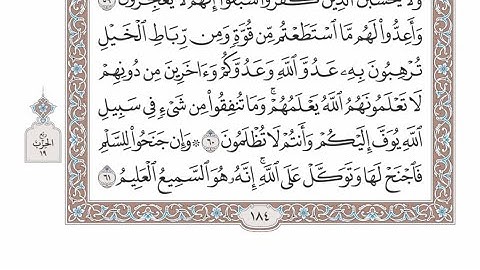 وَلَا يَحْسَبَنَّ ٱلَّذِينَ كَفَرُوا۟ سَبَقُوٓا۟ ۚ إِنَّهُمْ لَا يُعْجِزُونَ ٥٩
وَأَعِدُّوا۟ لَهُم مَّا ٱسْتَطَعْتُم مِّن قُوَّةٍ وَمِن رِّبَاطِ ٱلْخَيْلِ
تُرْهِبُونَ بِهِۦ عَدُوَّ ٱللَّهِ وَعَدُوَّكُمْ وَءَاخَرِينَ مِن دُونِهِمْ
لَا تَعْلَمُونَهُمُ ٱللَّهُ يَعْلَمُهُمْ ۚ وَمَا تُنفِقُوا۟ مِن شَىْءٍ فِى سَبِيلِ
ٱللَّهِ يُوَفَّ إِلَيْكُمْ وَأَنتُمْ لَا تُظْلَمُونَ ٦٠ ۞ وَإِن جَنَحُوا۟ لِلسَّلْمِ
فَٱجْنَحْ لَهَا وَتَوَكَّلْ عَلَى ٱللَّهِ ۚ إِنَّهُۥ هُوَ ٱلسَّمِيعُ ٱلْعَلِيمُ ٦١
ربع
الحزب
١٩
١٨٤